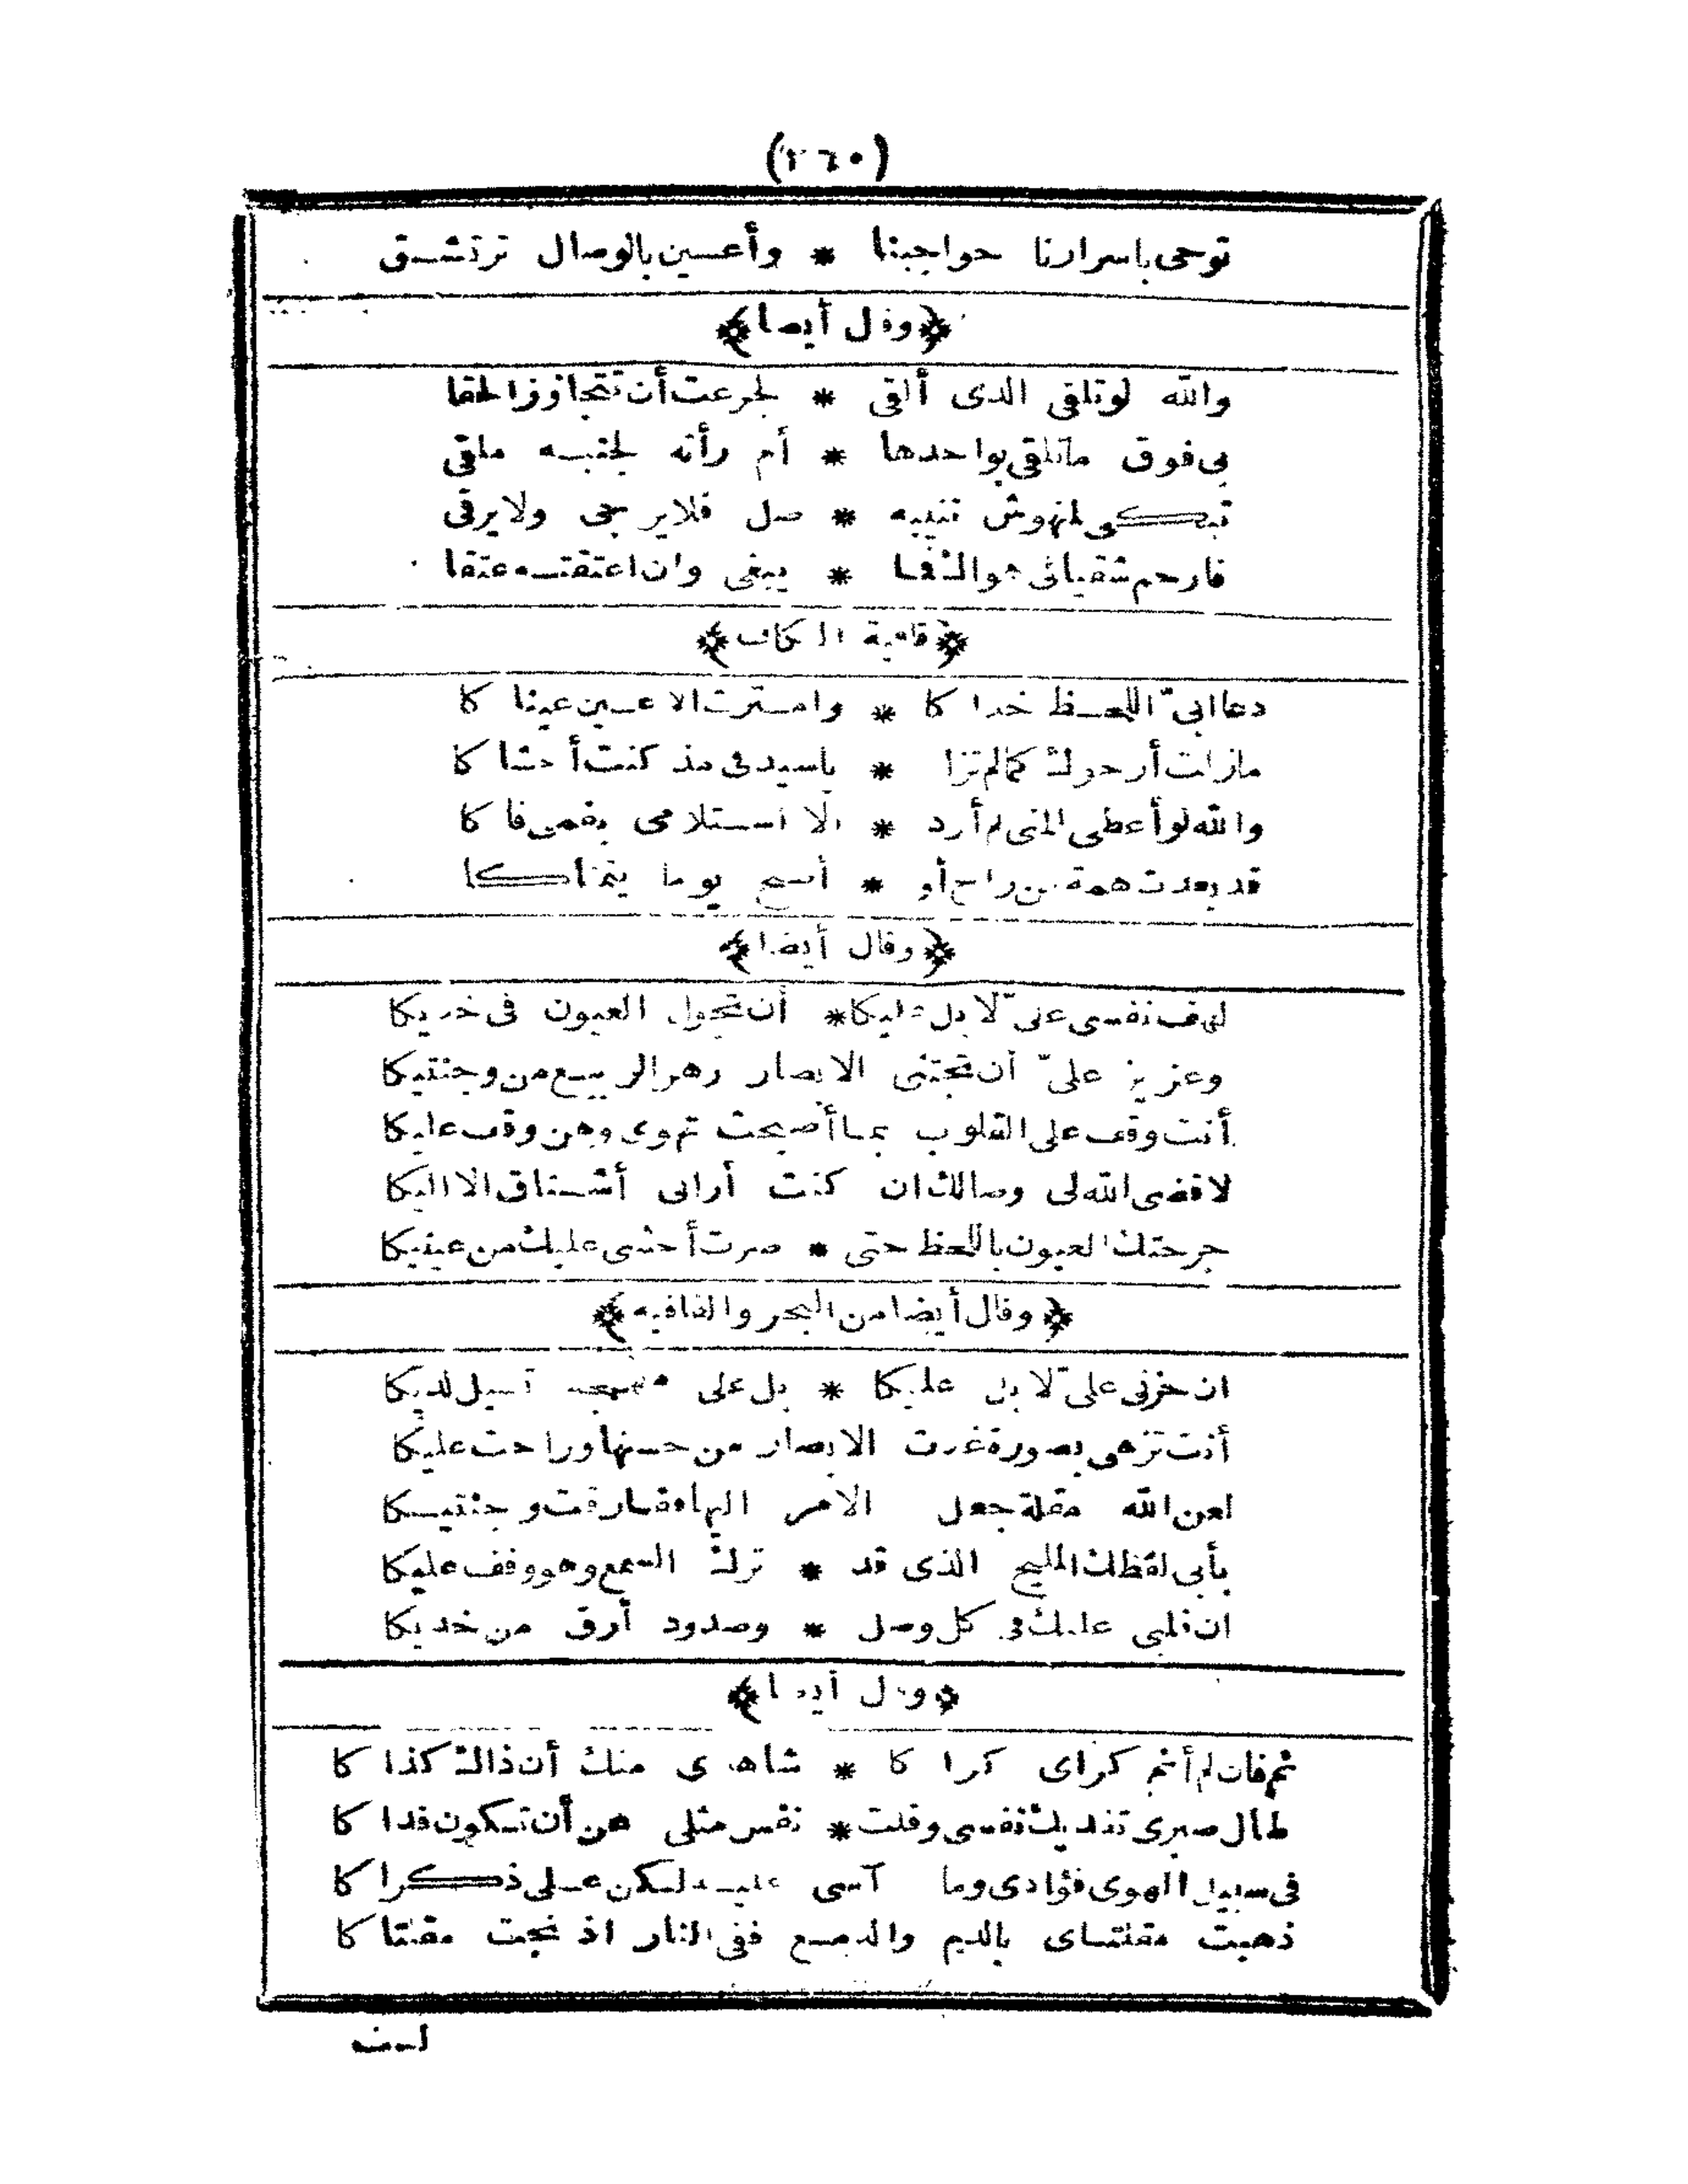 (٢٦٠)
توحى باسرارنا حواجبنا * وأعسين بالوصال ترتشق
﴿وقال أيضا﴾
والله لو تلقى الذى ألقى * لجرعت أن تتجاوز الحقا
بى فوق ما تلقى بواحدها * أم رأته لجنبه ملقى
تبكى لمنهوش تنيبه * صل فلا يرجى ولا يرقى
فارحم شقيا فى هوالـ شقا * يبغى وان اعتقته عتقا
﴿قافية الكاف﴾
دعا ابى اللحظ خدا كا * وامترت الاعين عينا كا
مازلت أرجوك كمالم تزا * ياسيدى مذ كنت أخشا كا
والله لو أعطى المنى لم أرد * الا استلامى بفمى فا كا
قد بعدت همة من راح أو * أصبح يوما يتمناكا
﴿وقال أيضا﴾
لهف نفسى على لا بل عليكا * أن تجول العيون فى خديكا
وعزيز على أن تجتنى الابصار زهر الربيع من وجنتيكا
أنت وقف على القلوب بما أصبحت تهوى وهن وقف عليكا
لاقضى الله لى وصالك ان كنت أرانى أشتاق الا اليكا
جرحتك العيون باللحظ حتى * صرت أخشى عليك من عينيكا
﴿وقال أيضا من البحر والقافيه﴾
ان حزنى على لا بل عليكا * بل على مهجة تسيل لديكا
أنت تزهى بصورة غدت الابصار من حسنها وراحت عليكا
لعن الله مقلة جعل الامر اليها ففارقت وجنتيكا
بأبى لفظك المليح الذى قد * ترك السمع وهو وقف عليكا
ان قلبى عليك فى كل وصل * وصدود أرق من خديكا
﴿وقال أيضا﴾
ثم فان لم أنم كراى كرا كا * شاهدى منك أن ذاك كذا كا
طال صبرى تفديك نفسى وقلت * نفس مثلى عن أن تكون فدا كا
فى سبيل الهوى فؤادى وما آسى عليه لكن على ذكرا كا
ذهبت مقلتاى بالدم والدمع ففى النار اذ نجت مقلتا كا
لـت